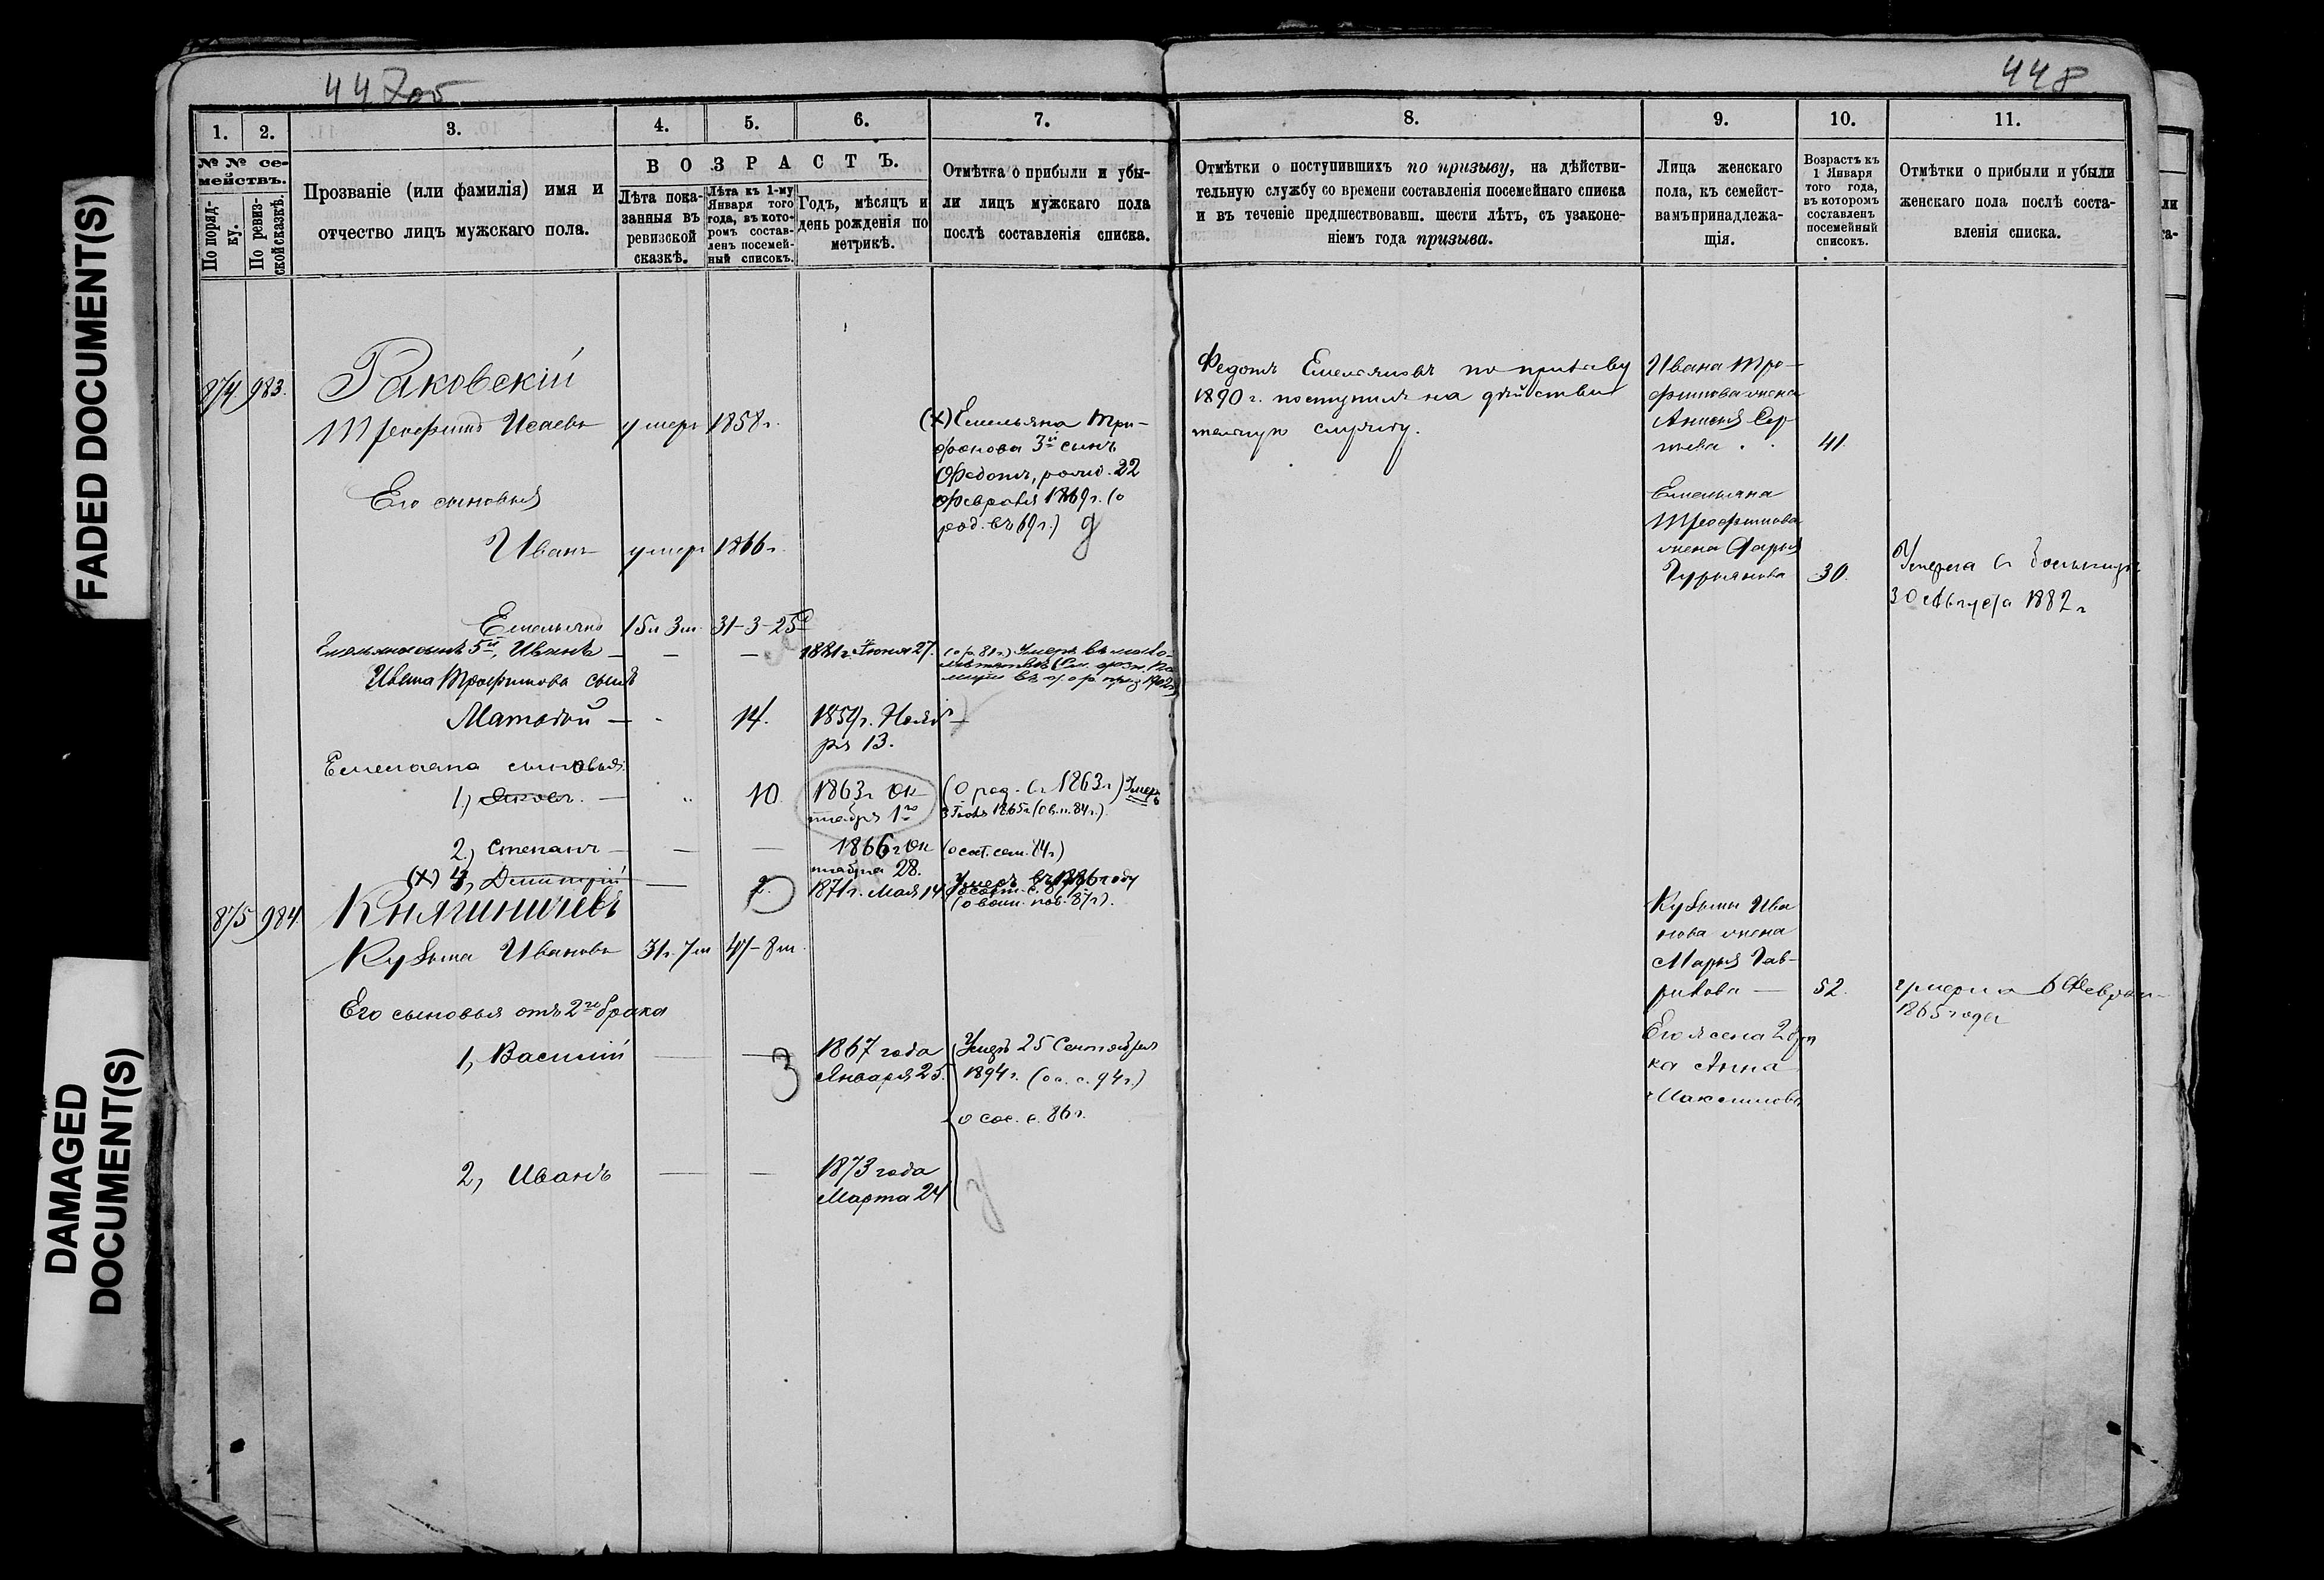 FADED DOCUMENT(S)
DAMAGED
DOCUMENT(S)
447об
448
1.
2.
3.
4.
5.
6.
7.
8.
9.
10.
11.
№ № се-
мействъ.
По поряд-
ку.
По ревиз-
ской сказкѣ.
Прозваніе (или фамилія) имя и
отчество лицъ мужскаго пола.
ВОЗРАСТЪ.
Лѣта пока-
занныя въ
ревизской
сказкѣ.
Лѣта къ 1-му
Января того
года, въ кото-
ромъ состав-
ленъ посемей-
ный списокъ.
Годъ, мѣсяцъ и
день рожденія по
метрикѣ.
Отмѣтка о прибыли и убы-
ли лицъ мужскаго пола
послѣ составленія списка.
Отмѣтки о поступившихъ по призыву, на дѣйстви-
тельную службу со времени составленія посемейнаго списка
и въ теченіе предшествовавш. шести лѣтъ, съ узаконе-
ніемъ года призыва.
Лица женскаго
пола, къ семейст-
вамъ принадлежа-
щія.
Возрастъ къ
1 Января
того года,
въ которомъ
составленъ
посемейный
списокъ.
Отмѣтки о прибыли и убыли
женскаго пола послѣ соста-
вленія списка.
874 983. Раковскій
Трофимъ Исаевъ умеръ 1858 г.
(х) Емельяна Тро-
фимова 3й сынъ
Федотъ, рожд. 22
Февраля 1869 г. (о
род. въ 69 г.)
Федотъ Емельяновъ по призыву
1890 г. поступилъ на дѣйстви
тельную службу.
Ивана Тро-
фимова жена
Анисья Сер
41.
Его сыновья
Иванъ умеръ 1866 г.
Емельяна
Трофимова
жена Дарья
Гурьянова 30.
Умерла
30 Августа 1882 г
Емельянъ 15л 3м. 31-3-25
Емельяна сынъ 5й, Иванъ — — 1881 г. Іюня 27.
Умеръ въ мало-
Ивана Трофимова сынъ
Матвѣй — 14. 1859 г. Нояб
ря 13.
Емельяна сыновья
1, Яковъ. — 10 1863 г Ок
тября 1го
(О род. въ 1863 г) Умеръ
2, Степанъ — — — 1866 г Ок
тября 28.
(х) 4, Дмитрій — 2. 1871 г. Мая 14
Умеръ въ 1886 году
875 984. Княгиничевъ
Кузьма Ивановъ 31 г. 7м 47-8м.
Кузьмы Ива
нова жена
Марья Гав-
рилова — 52.
умерла 6 Февраля
1865 года
Его сыновья отъ 2го брака
Его жена 2 бра
ка Анна
Максимова
1, Василій — — 1867 года
Января 25.
Умеръ 25 Сентября
1894 г. (о с. с. 94 г.)
о сос. с. 86 г.
2, Иванъ — — 1873 года
Марта 24